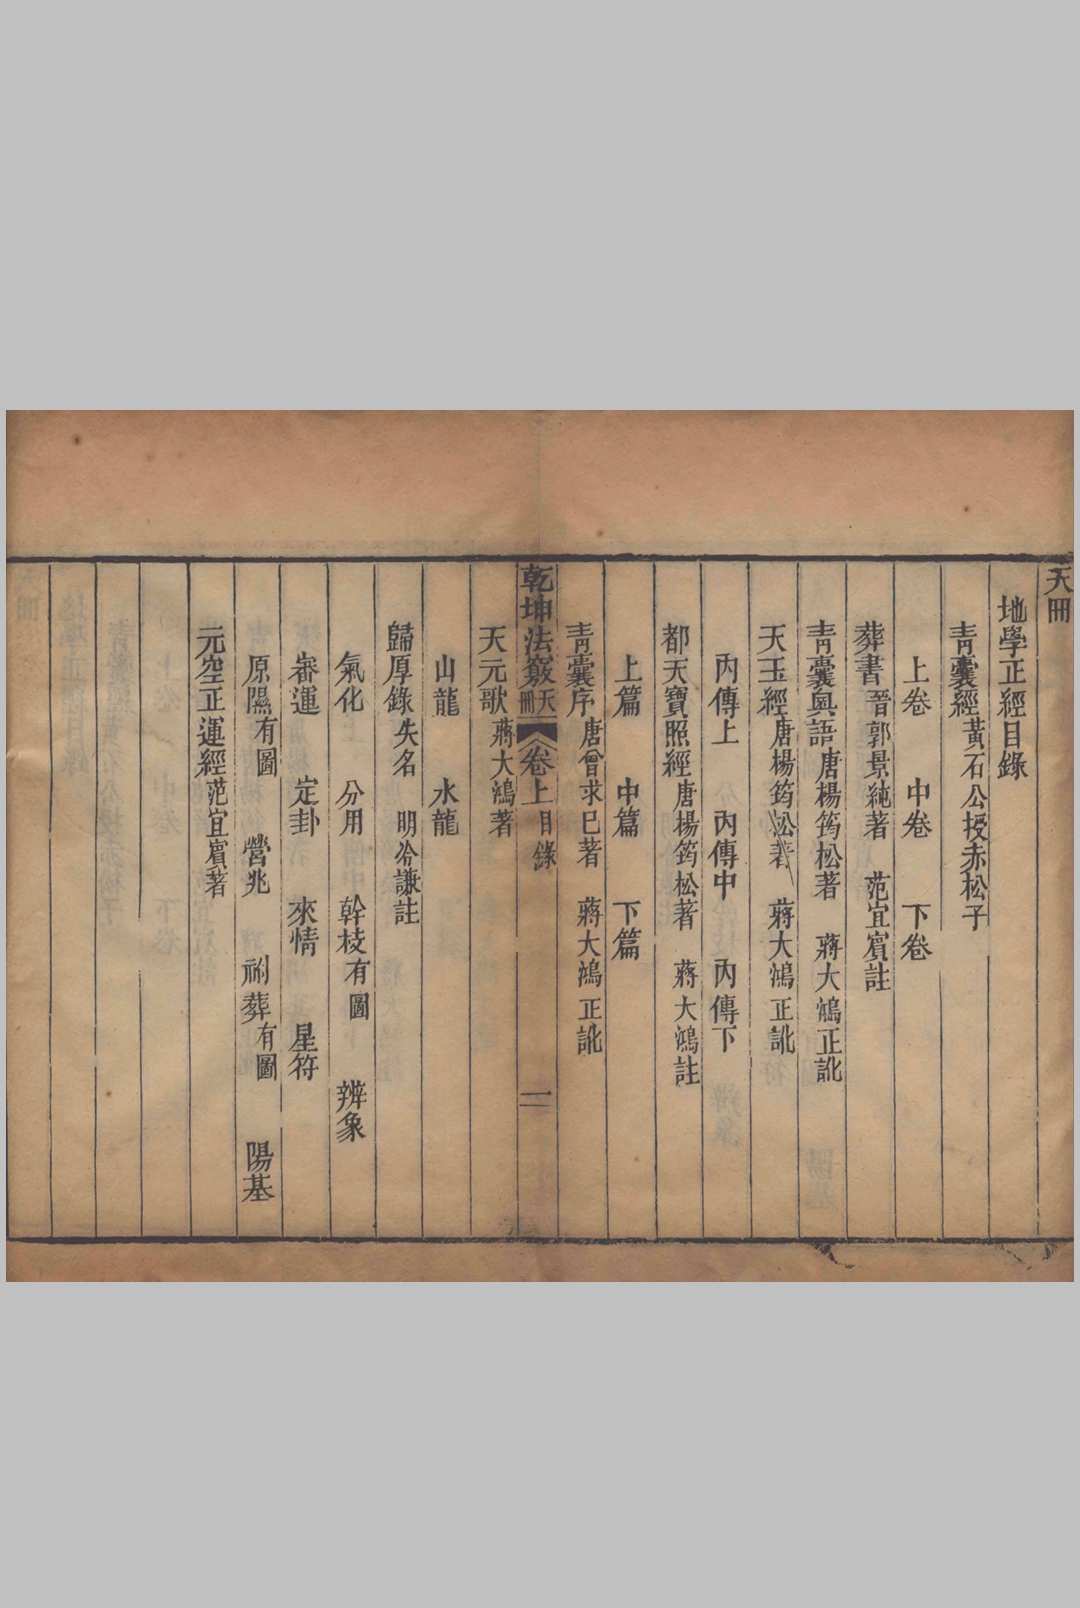 天冊
地學正經目錄
青囊經黃石公授赤松子
上卷　中卷　下卷
葬書晉郭景純著　范宜賓註
青囊奧語唐楊筠松著　蔣大鴻正訛
天玉經唐楊筠松著　蔣大鴻正訛
內傳上　內傳中　內傳下
都天寶照經唐楊筠松著　蔣大鴻註
上篇　中篇　下篇
青囊序唐曾求己著　蔣大鴻正訛
乾坤法竅天冊　卷上目錄　一
天元歌蔣大鴻著
山龍　水龍
歸厚錄失名　明冷謙註
氣化　分用　幹枝有圖　辨象
審運　定卦　來情　星符
原隰有圖　營兆　祔葬有圖　陽基
元空正運經范宜賓著